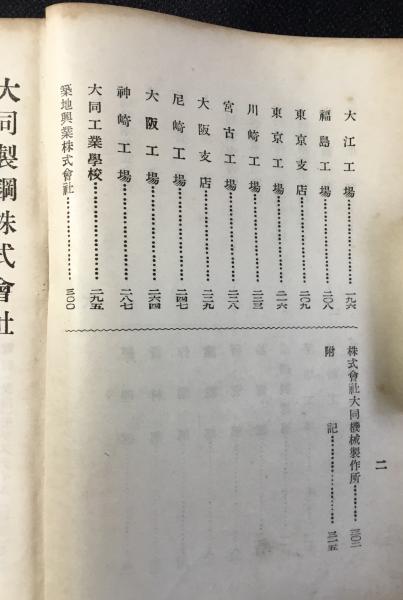 大江工場…………一九六
福島工場…………二〇八
東京支店…………二〇九
東京工場…………二一六
川崎工場…………二二三
宮古工場…………二二八
大阪支店…………二三九
尼崎工場…………二四七
大阪工場…………二六四
神崎工場…………二八七
大同工業學校…………二九五
築地興業株式會社…………三〇〇
株式會社大同機械製作所…………三〇二
附記…………三一五
二
大同製鋼株式會社